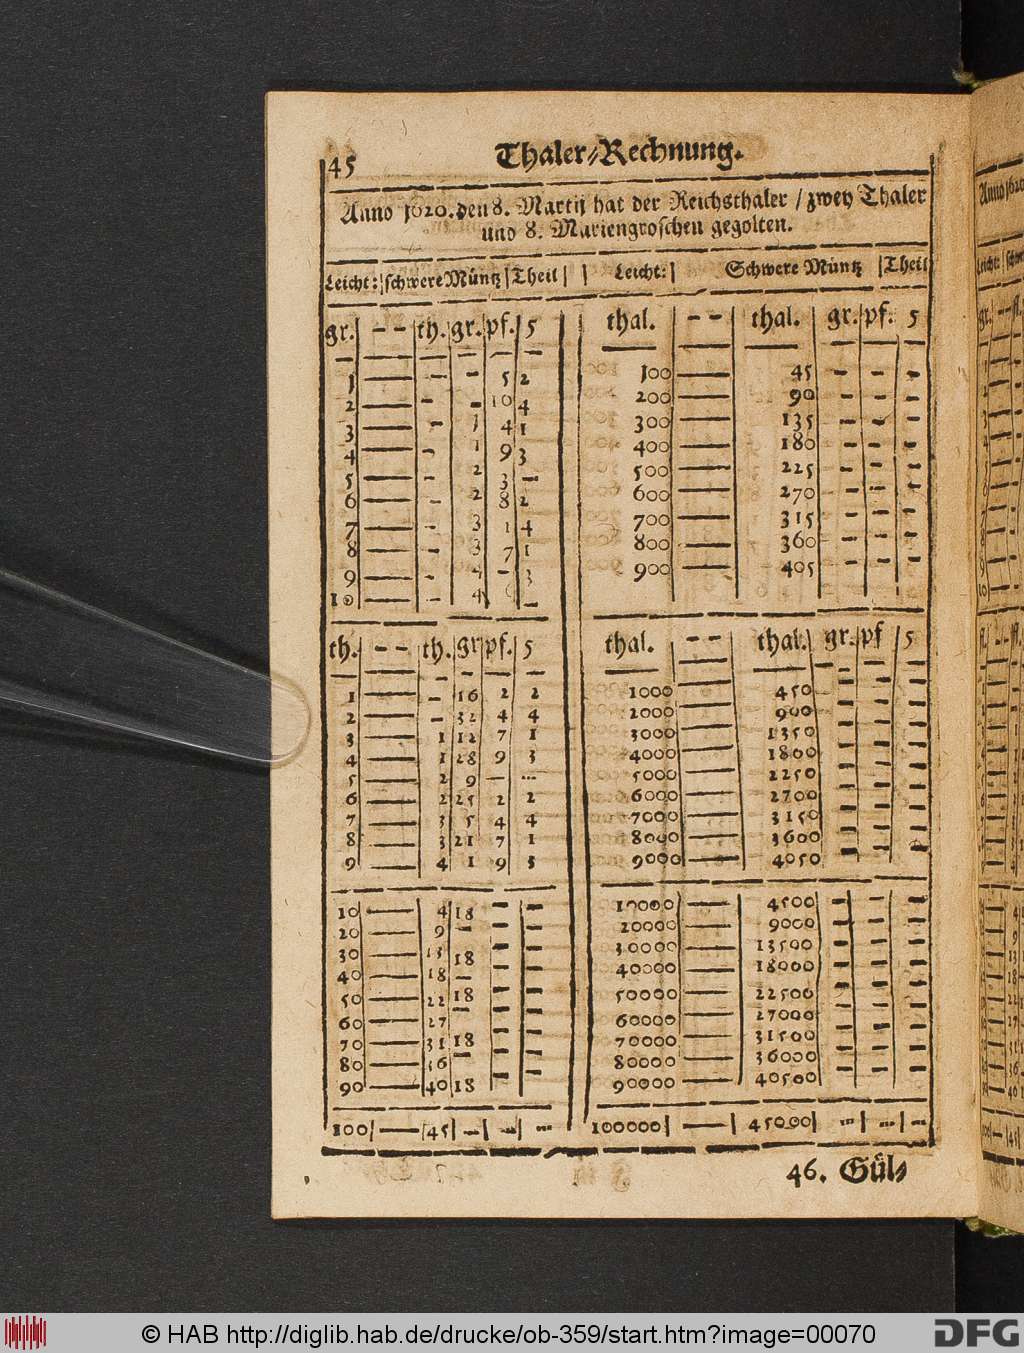 45 Thaler⸗Rechnung.
Anno 1620. den 8. Martij hat der Reichsthaler / zwey Thaler
und 8. Mariengroschen gegolten.
Leicht: | schwere Müntz | Theil | | Leicht: | Schwere Müntz | Theil
gr. | – – | th. | gr. | pf. | 5 | | thal. | – – | thal. | gr. | pf. | 5
1 | — | – | – | 5 | 2 | | 100 | — | 45 | – | – | –
2 | — | – | – | 10 | 4 | | 200 | — | 90 | – | – | –
3 | — | – | 1 | 4 | 1 | | 300 | — | 135 | – | – | –
4 | — | – | 1 | 9 | 3 | | 400 | — | 180 | – | – | –
5 | — | – | 2 | 3 | – | | 500 | — | 225 | – | – | –
6 | — | – | 2 | 8 | 2 | | 600 | — | 270 | – | – | –
7 | — | – | 3 | 1 | 4 | | 700 | — | 315 | – | – | –
8 | — | – | 3 | 7 | 1 | | 800 | — | 360 | – | – | –
9 | — | – | 4 | – | 3 | | 900 | — | 405 | – | – | –
10 | — | – | 4 | | –
th. | – – | th. | gr | pf. | 5 | | thal. | – – | thal. | gr. | pf | 5
1 | — | – | 16 | 2 | 2 | | 1000 | — | 450 | – | – | –
2 | — | – | 32 | 4 | 4 | | 2000 | — | 900 | – | – | –
3 | — | 1 | 12 | 7 | 1 | | 3000 | — | 1350 | – | – | –
4 | — | 1 | 28 | 9 | 3 | | 4000 | — | 1800 | – | – | –
5 | — | 2 | 9 | – | ... | | 5000 | — | 2250 | – | – | –
6 | — | 2 | 25 | 2 | 2 | | 6000 | — | 2700 | – | – | –
7 | — | 3 | 5 | 4 | 4 | | 7000 | — | 3150 | – | – | –
8 | — | 3 | 21 | 7 | 1 | | 8000 | — | 3600 | – | – | –
9 | — | 4 | 1 | 9 | 3 | | 9000 | — | 4050 | – | – | –
10 | — | 4 | 18 | – | – | | 10000 | — | 4500 | – | – | –
20 | — | 9 | – | – | – | | 20000 | — | 9000 | – | – | –
30 | — | 13 | 18 | – | – | | 30000 | — | 13500 | – | – | –
40 | — | 18 | – | – | – | | 40000 | — | 18000 | – | – | –
50 | — | 22 | 18 | – | – | | 50000 | — | 22500 | – | – | –
60 | — | 27 | – | – | – | | 60000 | — | 27000 | – | – | –
70 | — | 31 | 18 | – | – | | 70000 | — | 31500 | – | – | –
80 | — | 36 | – | – | – | | 80000 | — | 36000 | – | – | –
90 | — | 40 | 18 | – | – | | 90000 | — | 40500 | – | – | –
100 | — | 45 | – | ... | ... | | 100000 | — | 45000 | ... | ... | –
46. Gül⸗
© HAB http://diglib.hab.de/drucke/ob-359/start.htm?image=00070
DFG